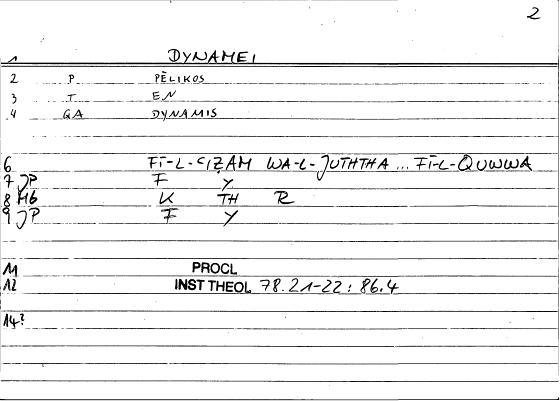 2
1 DYNAMEI
2 P PĒLIKOS
3 T EN
4 QA DYNAMIS
6 FĪ-L-CIẒAM WA-L-JUTHTHA ... FĪ-L-QUWWA
7 JP F Y
8 M6 K TH R
9 JP F Y
11 PROCL
12 INST THEOL 78.21-22 : 86.4
14?